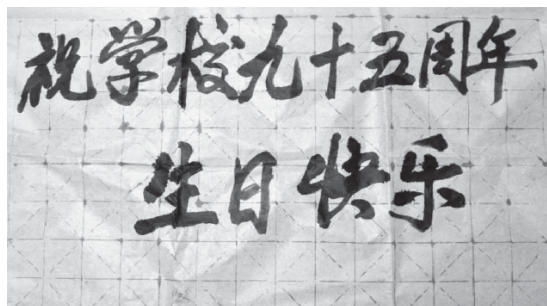 祝学校九十五周年
生日快乐